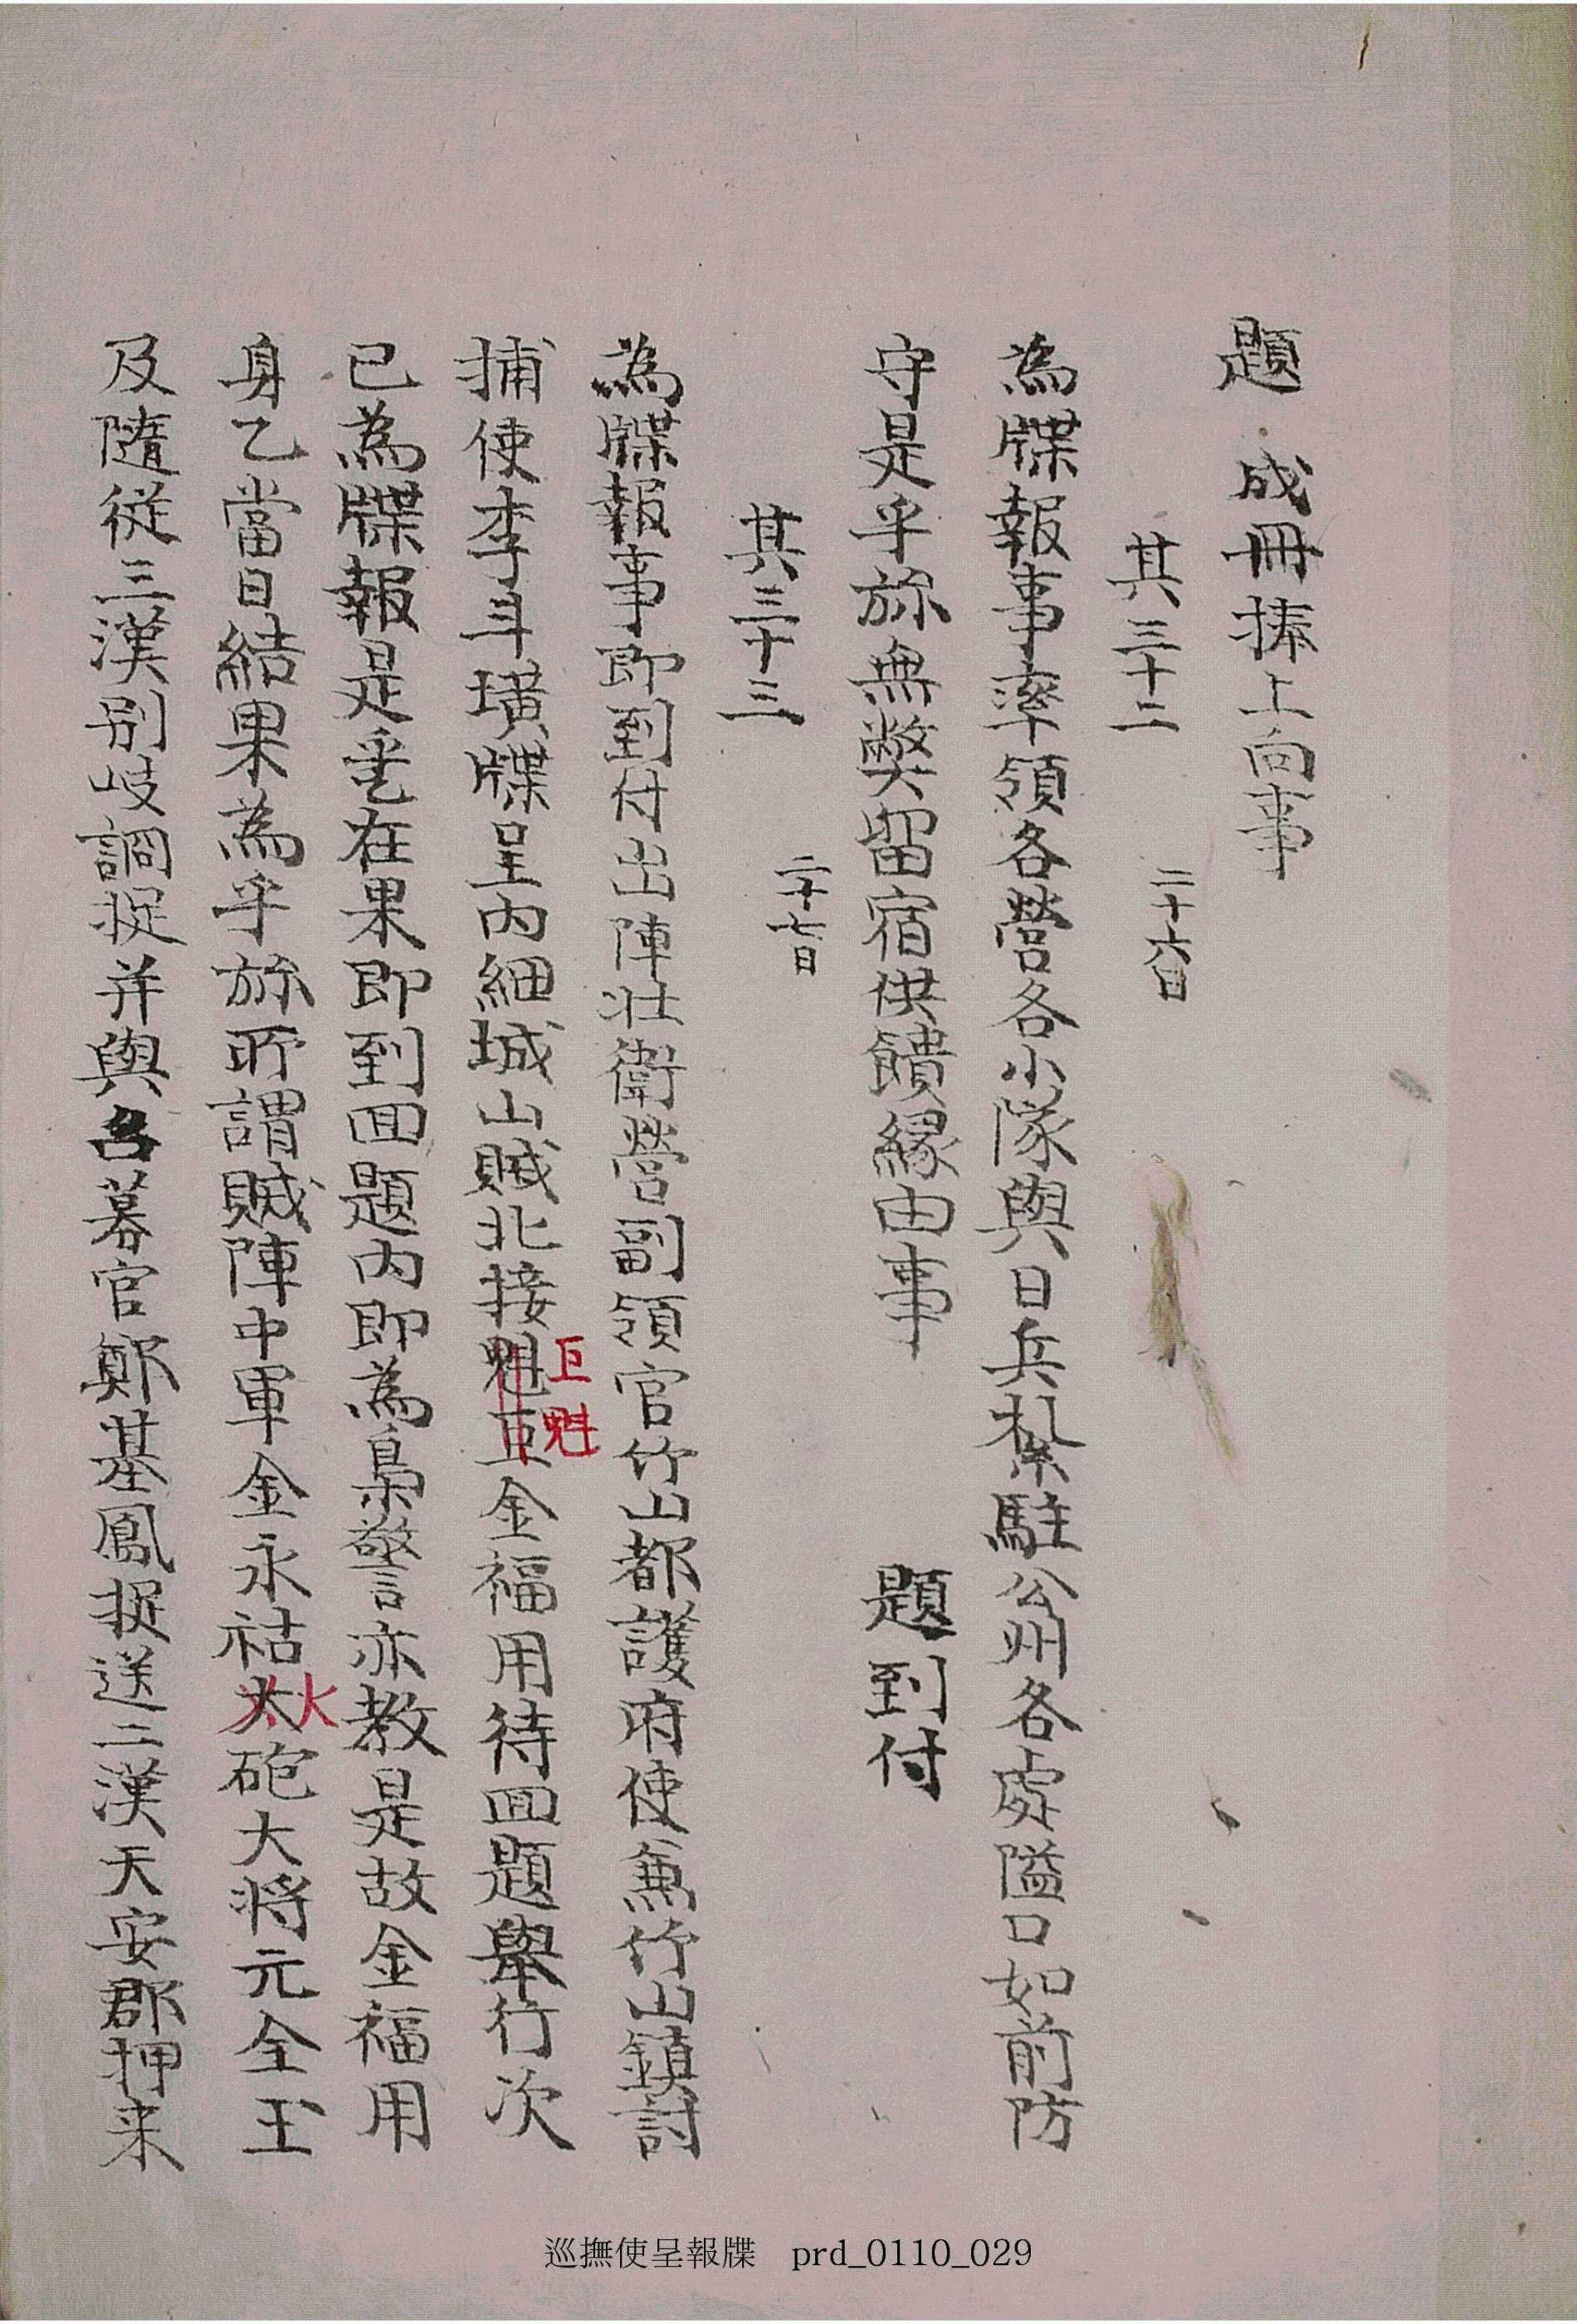 題 成冊捧上向事
其三十二 二十六日
為牒報事率領各營各小隊與日兵紮駐公州各處隘口如前防
守是乎旀無弊留宿供饋緣由事 題到付
其三十三 二十七日
為牒報事卽到付出陣壯衛營副領官竹山都護府使兼竹山鎭討
捕使李斗璜牒呈內細城山賊北接魁巨金福用待回題擧行次
巨魁
已為牒報是乎在果卽到回題內卽為梟警亦敎是故金福用
身乙當日結果為乎旀所謂賊陣中軍金永祜大砲大將元全玉
火
及隨從三漢別歧調捉并與召募官鄭基鳳捉送二漢天安郡押来
巡撫使呈報牒 prd_0110_029